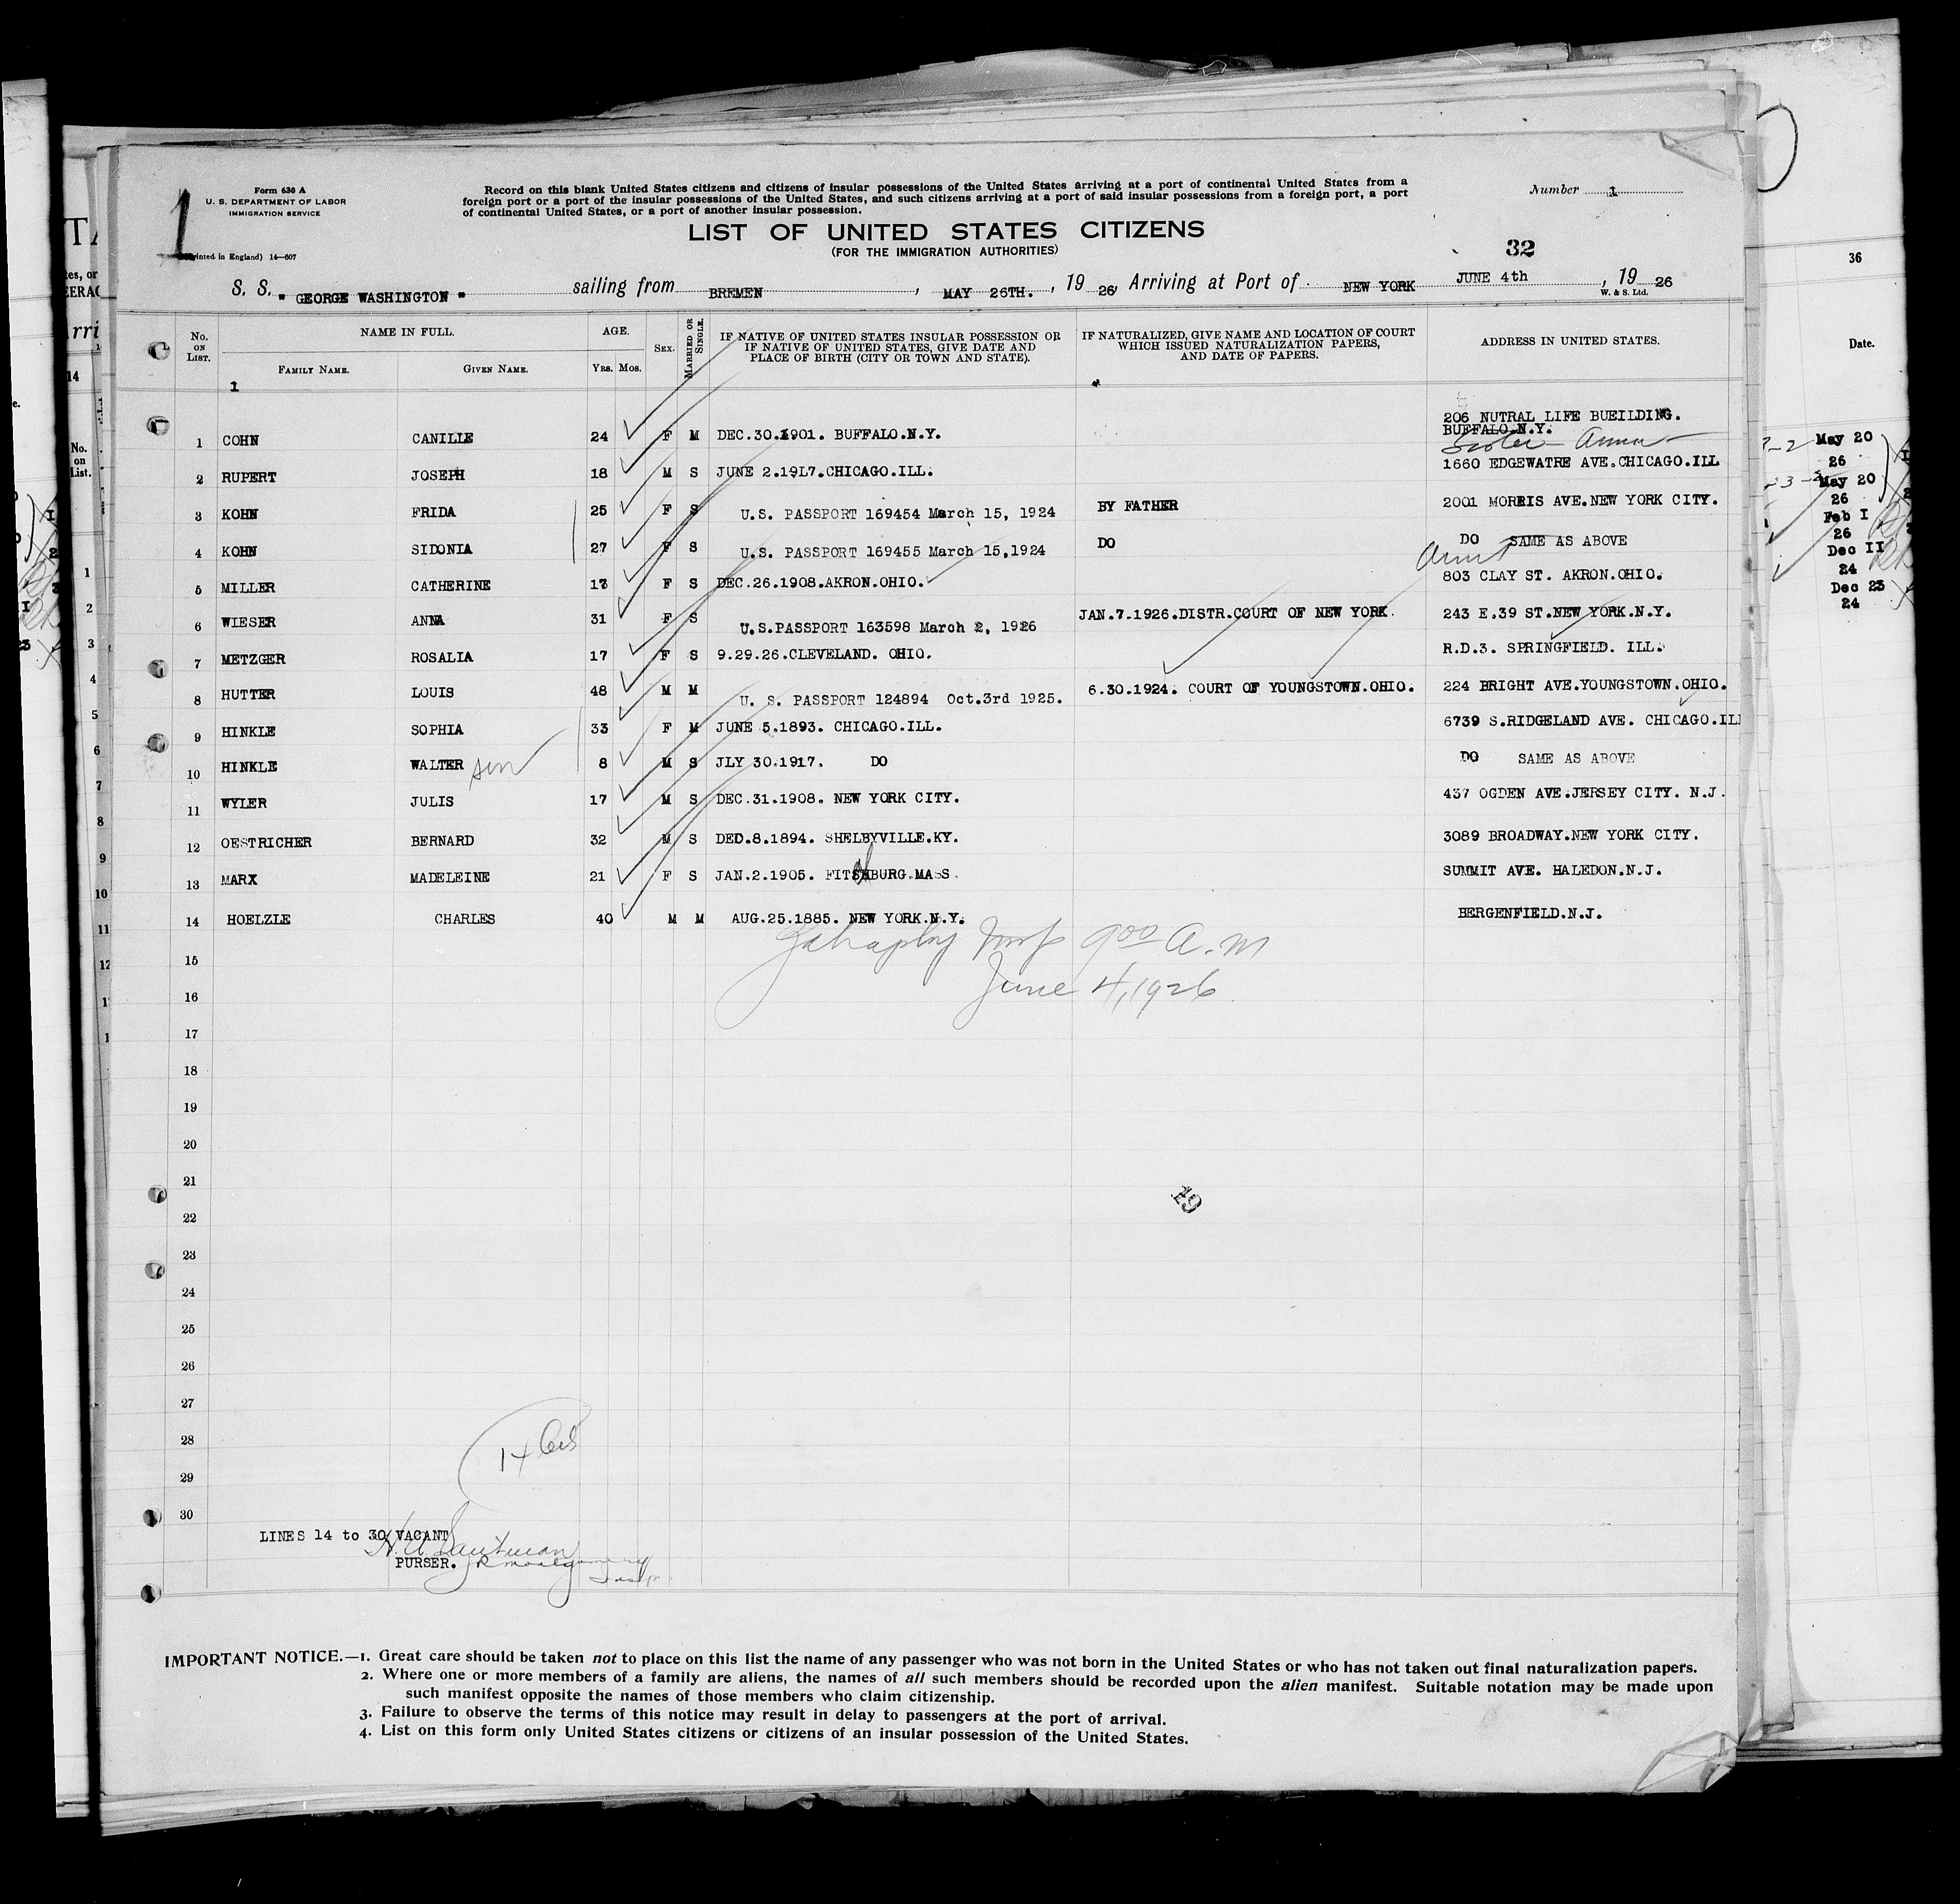 Form 630 A
U. S. DEPARTMENT OF LABOR
IMMIGRATION SERVICE
1
(Printed in England) 14—607
Record on this blank United States citizens and citizens of insular possessions of the United States arriving at a port of continental United States from a
foreign port or a port of the insular possessions of the United States, and such citizens arriving at a port of said insular possessions from a foreign port, a port
of continental United States, or a port of another insular possession.
Number 1
LIST OF UNITED STATES CITIZENS
(FOR THE IMMIGRATION AUTHORITIES)
32
S. S. " GEORGE WASHINGTON " sailing from BREMEN, MAY 26TH., 19 26, Arriving at Port of NEW YORK JUNE 4th, 19 26
W. & S. Ltd.
No. ON LIST. NAME IN FULL. FAMILY NAME. GIVEN NAME. AGE. YRS. MOS. SEX. MARRIED OR SINGLE. IF NATIVE OF UNITED STATES INSULAR POSSESSION OR IF NATIVE OF UNITED STATES, GIVE DATE AND PLACE OF BIRTH (CITY OR TOWN AND STATE). IF NATURALIZED, GIVE NAME AND LOCATION OF COURT WHICH ISSUED NATURALIZATION PAPERS, AND DATE OF PAPERS. ADDRESS IN UNITED STATES.
1
206 NUTRAL LIFE BUEILDING.
1 COHN CANILLE 24 F M DEC.30.1901. BUFFALO.N.Y. BUFFALO.N.Y.
2 RUPERT JOSEPH 18 M S JUNE 2.19L7.CHICAGO.ILL. 1660 EDGEWATRE AVE.CHICAGO.ILL
3 KOHN FRIDA 25 F S U.S. PASSPORT 169454 March 15, 1924 BY FATHER 2001 MORRIS AVE.NEW YORK CITY.
4 KOHN SIDONIA 27 F S U.S. PASSPORT 169455 March 15,1924 DO DO SAME AS ABOVE
Aunt
5 MILLER CATHERINE 17 F S DEC.26.1908.AKRON.OHIO. 803 CLAY ST. AKRON.OHIO.
6 WIESER ANNA 31 F S U.S.PASSPORT 163598 March 2, 1926 JAN.7.1926.DISTR.COURT OF NEW YORK. 243 E.39 ST.NEW YORK.N.Y.
7 METZGER ROSALIA 17 F S 9.29.26.CLEVELAND. OHIO. R.D.3. SPRINGFIELD. ILL.
8 HUTTER LOUIS 48 M M U. S. PASSPORT 124894 Oct.3rd 1925. 6.30.1924. COURT OF YOUNGSTOWN.OHIO. 224 BRIGHT AVE.YOUNGSTOWN.OHIO.
9 HINKLE SOPHIA 33 F M JUNE 5.1893. CHICAGO.ILL. 6739 S.RIDGELAND AVE. CHICAGO.ILL
10 HINKLE WALTER son 8 M S JLY 30.1917. DO DO SAME AS ABOVE
11 WYLER JULIS 17 M S DEC.31.1908. NEW YORK CITY. 437 OGDEN AVE.JERSEY CITY. N.J.
12 OESTRICHER BERNARD 32 M S DED.8.1894. SHELBYVILLE.KY. 3089 BROADWAY.NEW YORK CITY.
13 MARX MADELEINE 21 F S JAN.2.1905. FITSHBURG.MASS. SUMMIT AVE. HALEDON.N.J.
14 HOELZLE CHARLES 40 M M AUG.25.1885. NEW YORK.N.Y. BERGENFIELD.N.J.
9 00 A.M
15
June 4, 1926
16
17
18
19
20
21
19
22
23
24
25
26
27
28
14
29
30
LINES 14 to 30 VACANT
PURSER.
IMPORTANT NOTICE.—1. Great care should be taken not to place on this list the name of any passenger who was not born in the United States or who has not taken out final naturalization papers.
2. Where one or more members of a family are aliens, the names of all such members should be recorded upon the alien manifest. Suitable notation may be made upon
such manifest opposite the names of those members who claim citizenship.
3. Failure to observe the terms of this notice may result in delay to passengers at the port of arrival.
4. List on this form only United States citizens or citizens of an insular possession of the United States.
36
Date.
May 20
26
May 20
26
Feb I
26
Dec II
24
Dec 23
24
No.
on
List.
1
2
3
4
5
6
7
8
9
10
11
12